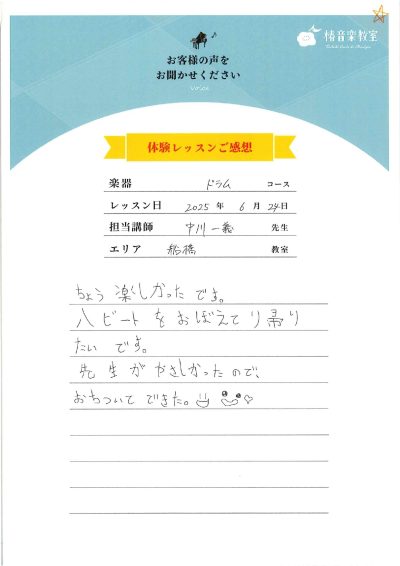 お客様の声を
お聞かせください
Voice
椿音楽教室
体験レッスンご感想
楽器 ドラム コース
レッスン日 2025 年 6 月 24 日
担当講師 中川 一義 先生
エリア 船橋 教室
ちょう 楽しかった です。
八ビート を おぼえて り 帰り
たい です。
先生が やさしかったので、
おちついて できた。